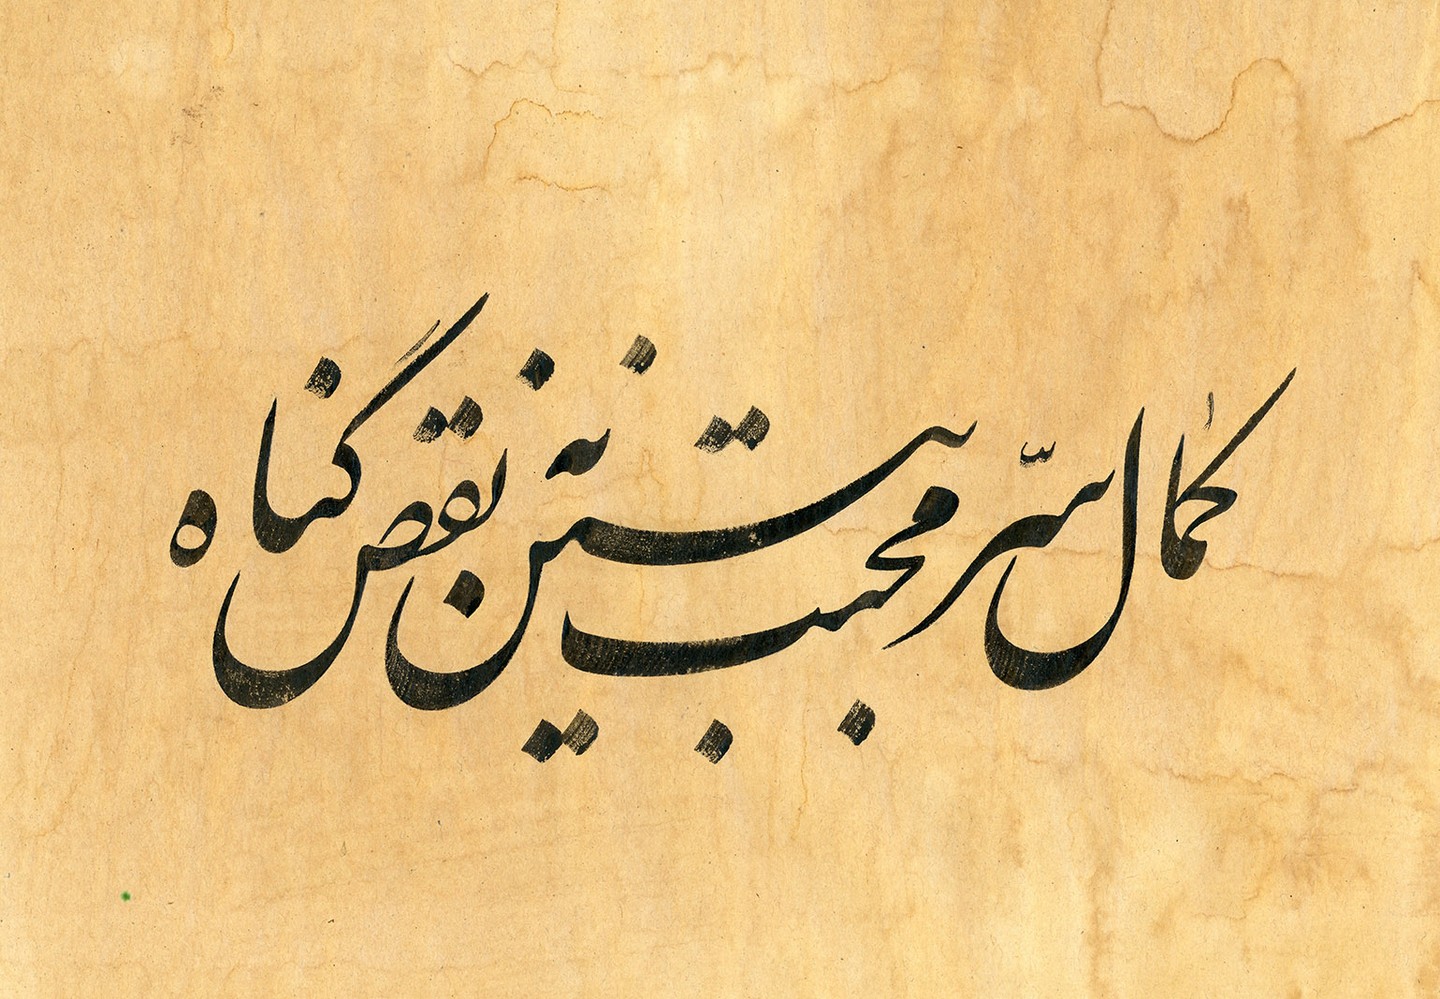 کمال سرّ محبت ببین نه نقص گناه